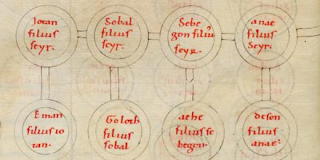 ioran
filius
seyr.
Sobal
filius
seyr.
Sebe
gon filiu
seyr.
anae
filius
Seyr.
Eman
filius io
ran.
Goloth
filius
sobal
ache
filius se
begon.
deson
filius
anae.